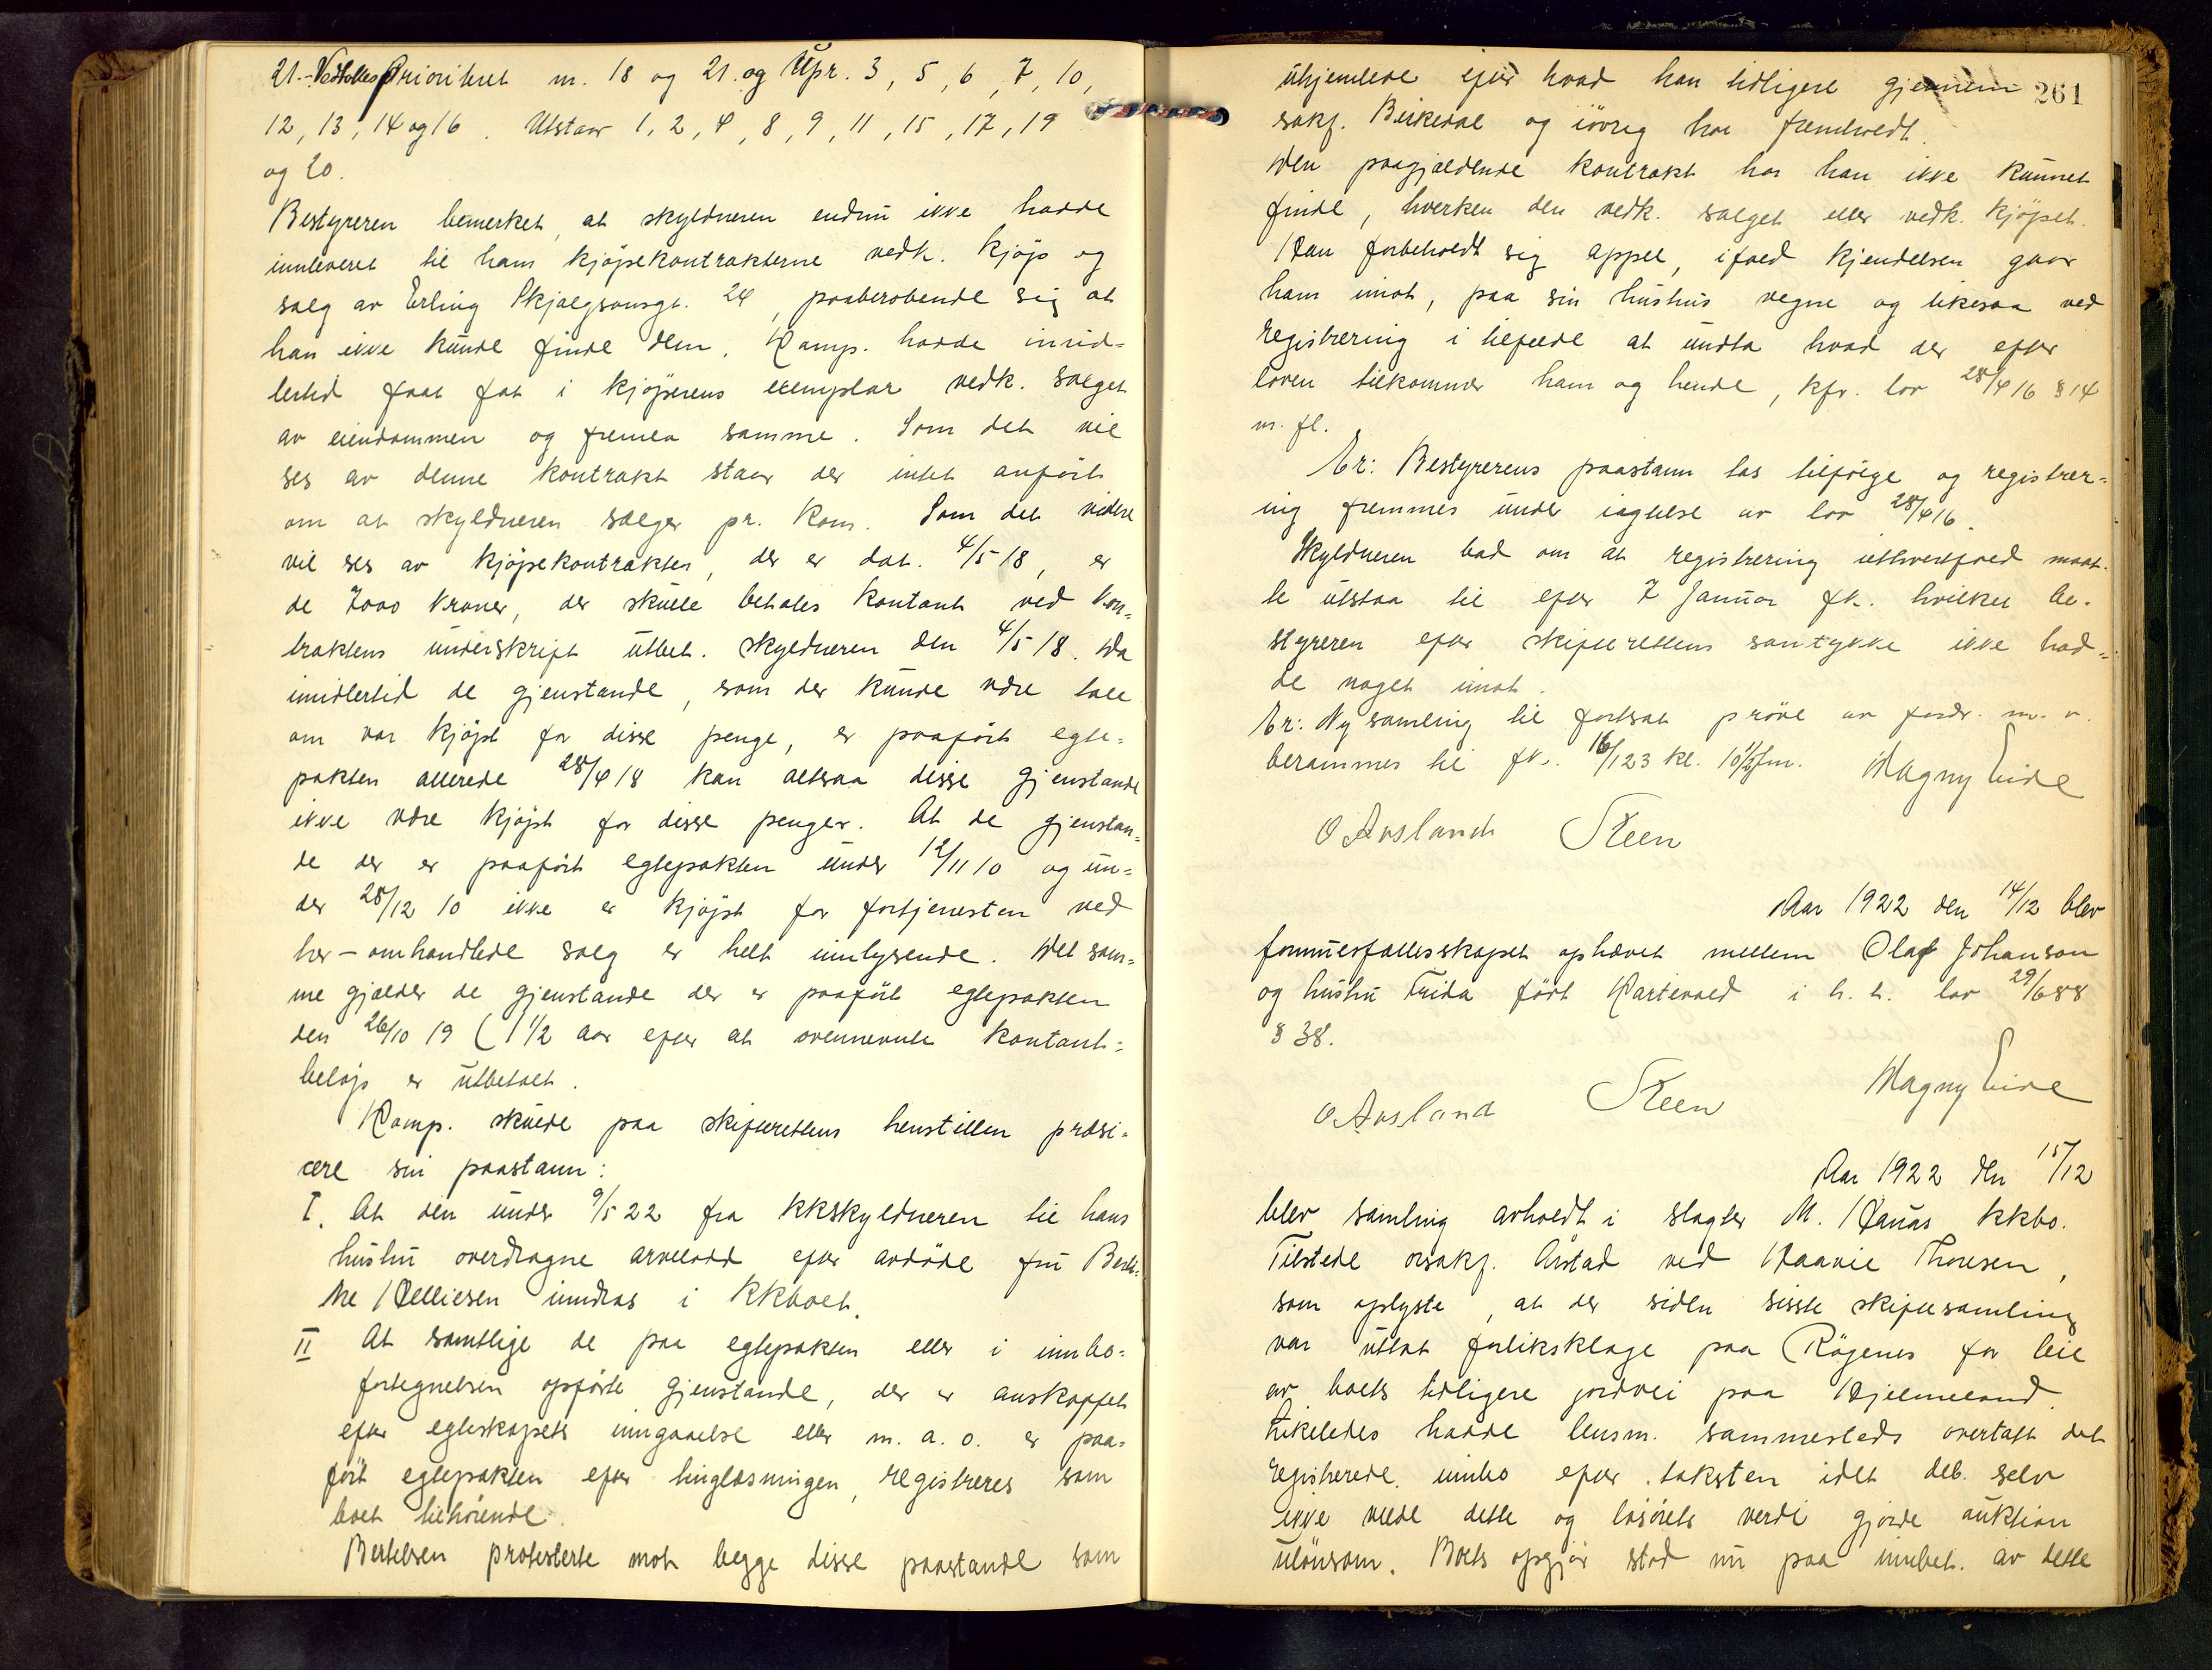 21.- Vedtokes Prioritert nr. 18 og 21. og Upr. 3, 5, 6, 7, 10,
12, 13, 14 og 16. Utstaar 1, 2, 4, 8, 9, 11, 15, 17, 19
og 20.
Bestyreren bemerket, at skyldneren endnu ikke hadde
innleveret til ham kjøpekontrakterne vedk. kjøp og
salg av Erling Skjalgsonsgt. 24, paaberobende sig at
han ikke kunde finde dem. Komp. hadde imid=
lertid faat fat i kjøperens exemplar vedk. salget
av eiendommen og fremla samme. Som det vil
ses av denne kontrakt staar der intet anført
om at skyldneren sælger pr. kom. Som det videre
vil ses av kjøpekontrakten, der er dat. 4/5 18, er
de 7000 kroner, der skulle betales kontant ved kon=
traktens underskrift utbet. skyldneren den 4/5 18. Da
imidlertid de gjenstande, som der kunde være tale
om var kjøpt for disse penge, er paaført egte=
pakten allerede 28/4 18 kan altsaa disse gjenstande
ikke være kjøpt for disse penger. At de gjenstan=
de der er paaført egtepakten under 12/11 10 og un=
der 28/12 10 ikke er kjøpt for fortjenesten ved
her-omhandlede salg er helt innlysende. Det sam=
me gjælder de gjenstande der er paaført egtepakten
den 26/10 19 (1 1/2 aar efter at ovennevnte kontant=
beløp er utbetalt.
Komp. skulde paa skifterettens henstillen præsi=
cere sin paastann:
I. At den under 9/5 22 fra kkskyldneren til hans
hustru overdragne arvelodd efter avdøde fru Bert
ine Helliesen inndras i kkboet.
II At samtlige de paa egtepakten eller i innbo=
fortegnelsen opførte gjenstande, der er anskaffet
efter egteskapets inngaaelse eller m. a. o. er paa=
ført egtepakten efter tinglæsningen, registreres som
boet tilhørende.
Bertelsen protesterte mot begge disse paastande som
261
uhjemlede efter hvad han tidligere gjennem
sakf. Birkedal og iøvrig har fremholdt.
Den paagjældende kontrakt har han ikke kunnet
finde, hverken den vedk. salget eller vedk. kjøpet.
Han forbeholdt sig appel, ifald kjendelsen gaar
ham imot, paa sin hustrus vegne og likesaa ved
registrering i tilfelde at undta hvad der efter
loven tilkommer ham og hende, kfr. lov 28/4 16 § 14
m. fl.
Er: Bestyrerens paastann tas tilfølge og registrer=
ing fremmes under iagttelse av lov 28/4 16.
Skyldneren bad om at registrering iethvertfald maat-
te utstaa til efter 7 Januar fk. hvilket be-
styreren efter skifterettens samtykke ikke had=
de noget imot.
Er: Ny samling til fortsat prøve av fordr. m. v.
berammes til fk. 16/1 23 kl. 10 1/2 fm. Magny Eide
O Avsland Steen
Aar 1922 den 14/12 blev
formuesfællesskapet ophævet mellem Olaf Johanson
og hustru Frida født Kartevold i h. t. lov 29/6 88
§ 38.
O Avsland Steen Magny Eide
Aar 1922 den 15/12
blev samling avholdt i slagter M. Hauas kkbo.
Tilstede orsakf. Årstad ved Haavie Thoresen,
som oplyste, at der siden siste skiftesamling
var uttat forliksklage paa Røgenes for leie
av boets tidligere jordvei paa Hjelmeland.
Likeledes hadde lensm. sammesteds overtatt det
registrerede innbo efter taksten idet deb. selv
ikke vilde dette og løsørets verdi gjorde auktion
ulønsom. Boets opgjør stod nu paa innbet. av dette